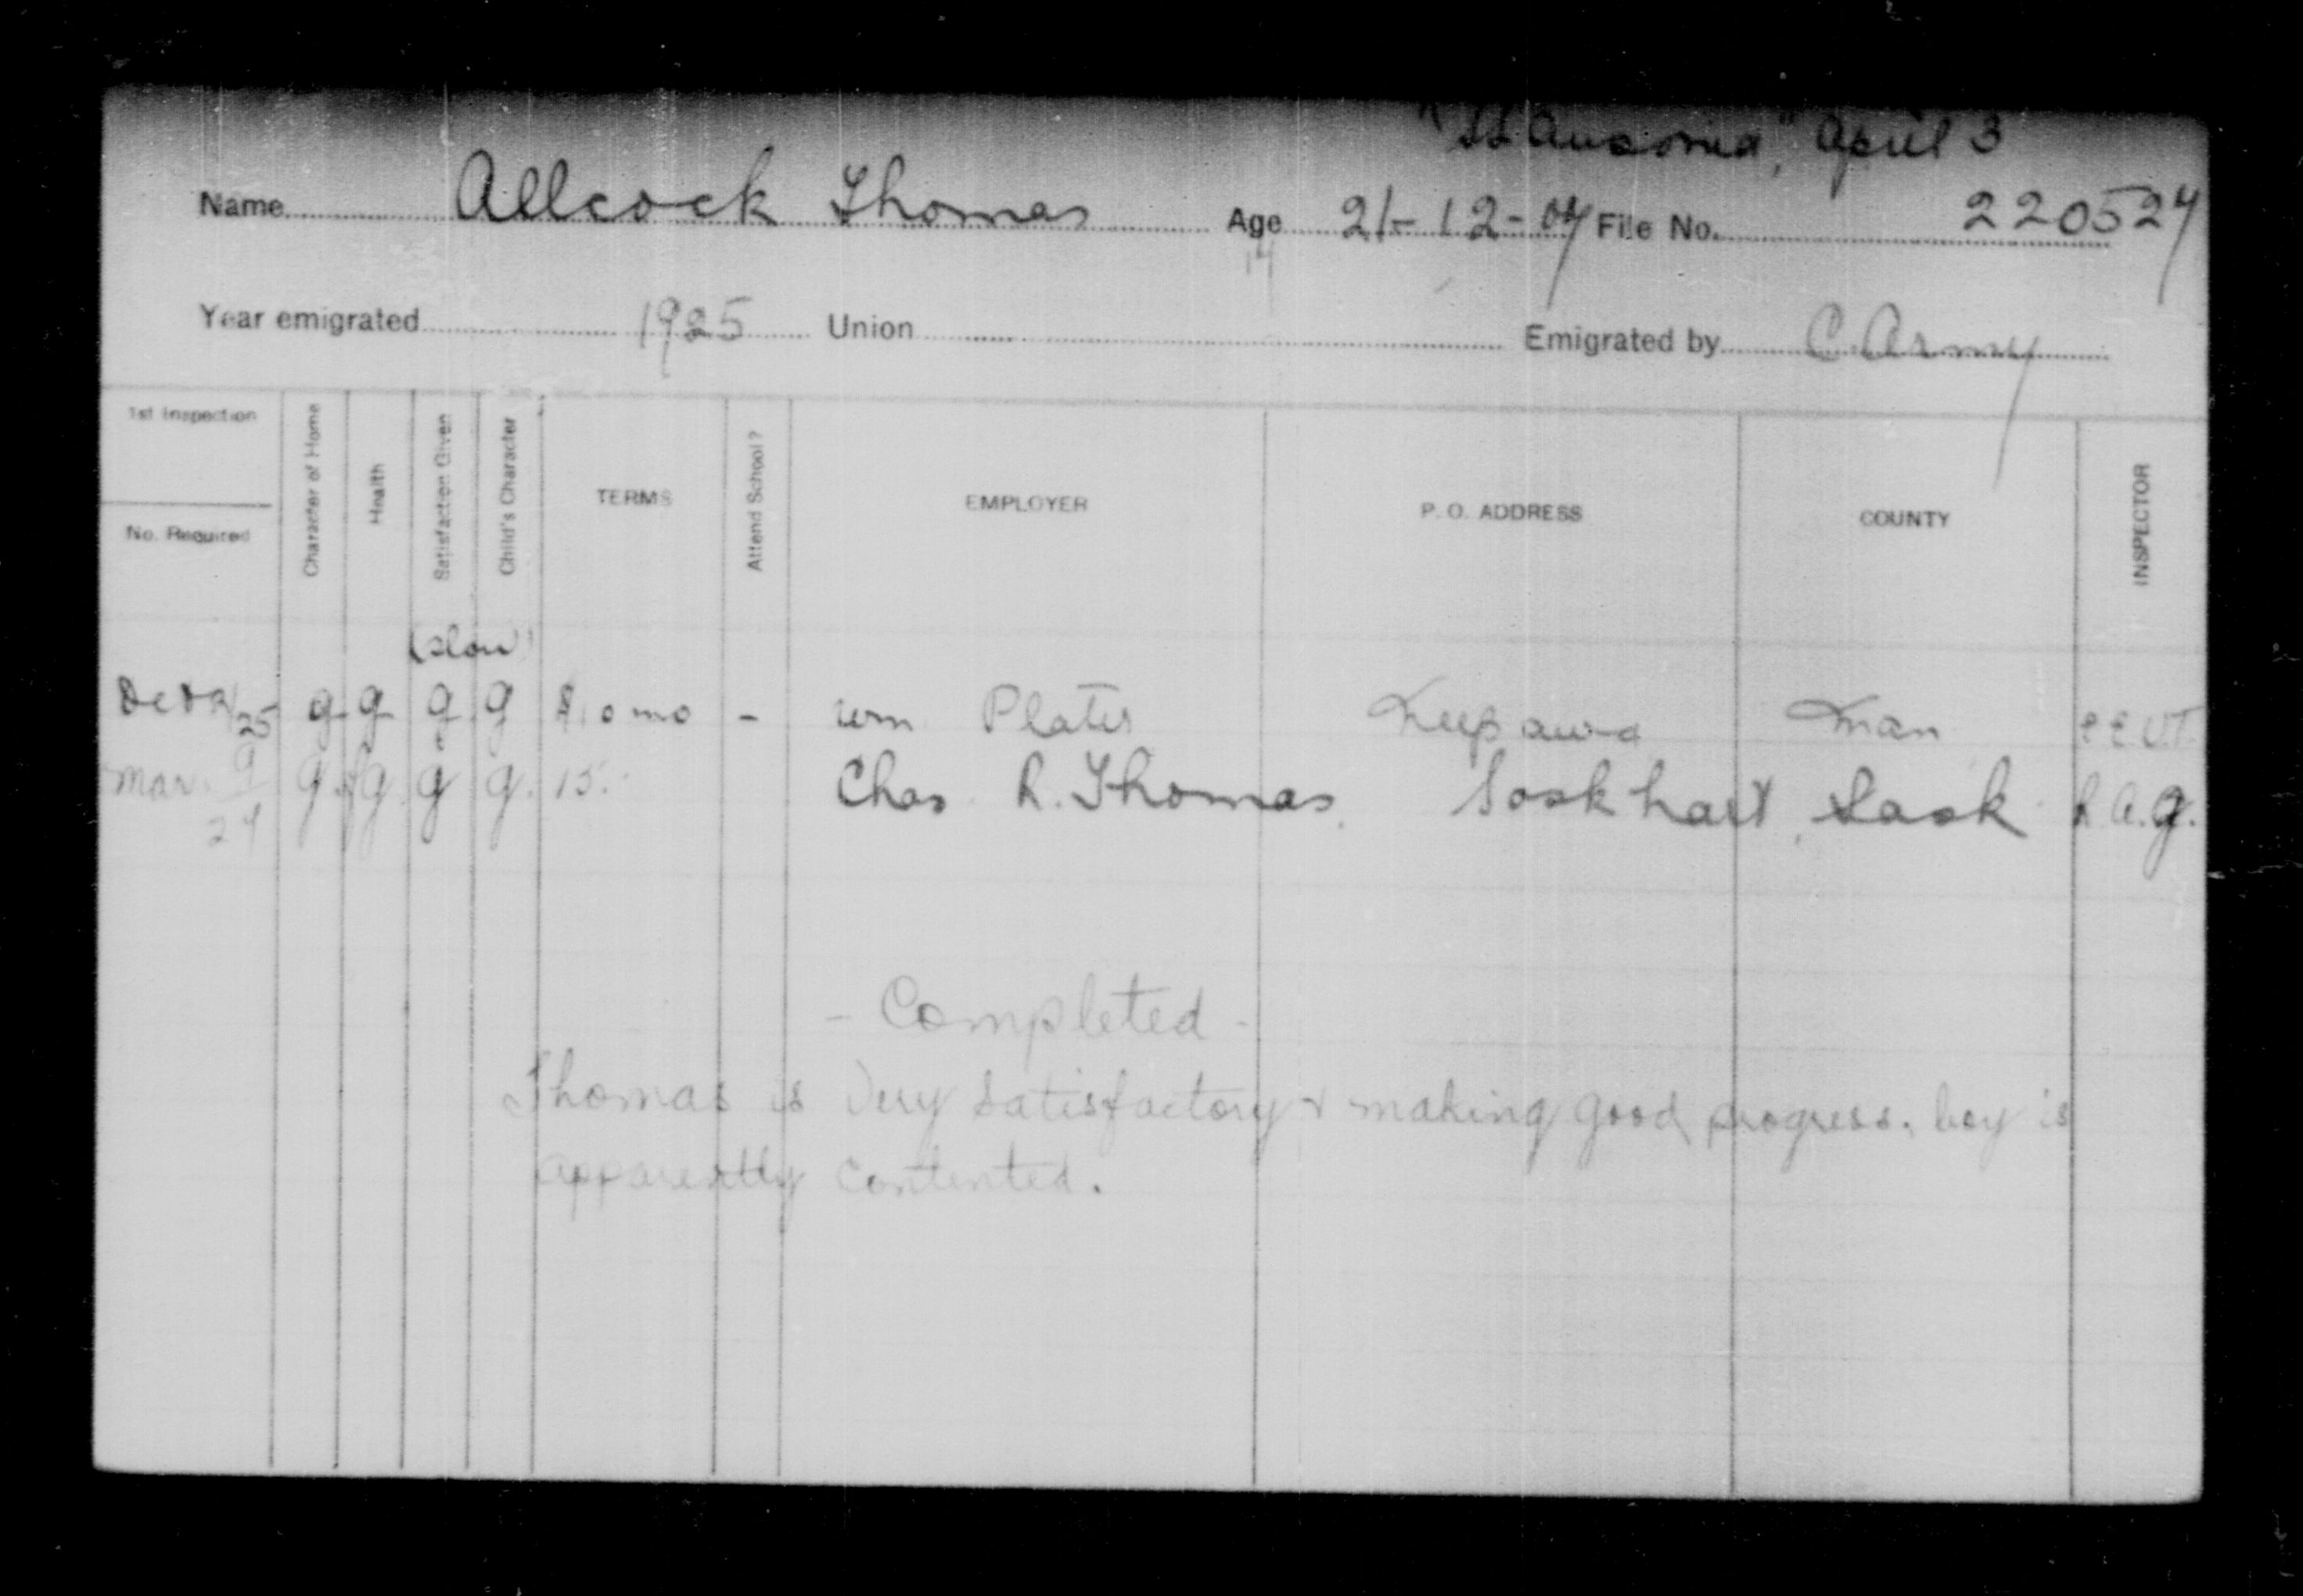 "SS Ausonia", April 3
Name Allcock Thomas Age 21-12-07 File No. 220527
14
Year emigrated 1925 Union Emigrated by C. Army
1st Inspection
No. Required
Character of Home
Health
Satisfaction Given
Child's Character
TERMS
Attend School?
EMPLOYER
P. O. ADDRESS
COUNTY
INSPECTOR
(slow)
25 g g g g $10 mo - Wm Plater Keepawa Man
Mar. 9 g g g g. 15. Chas R. Thomas. Lockhart, Sask R.A.G.
- Completed -
Thomas is very satisfactory & making good progress. boy is
apparently contented.